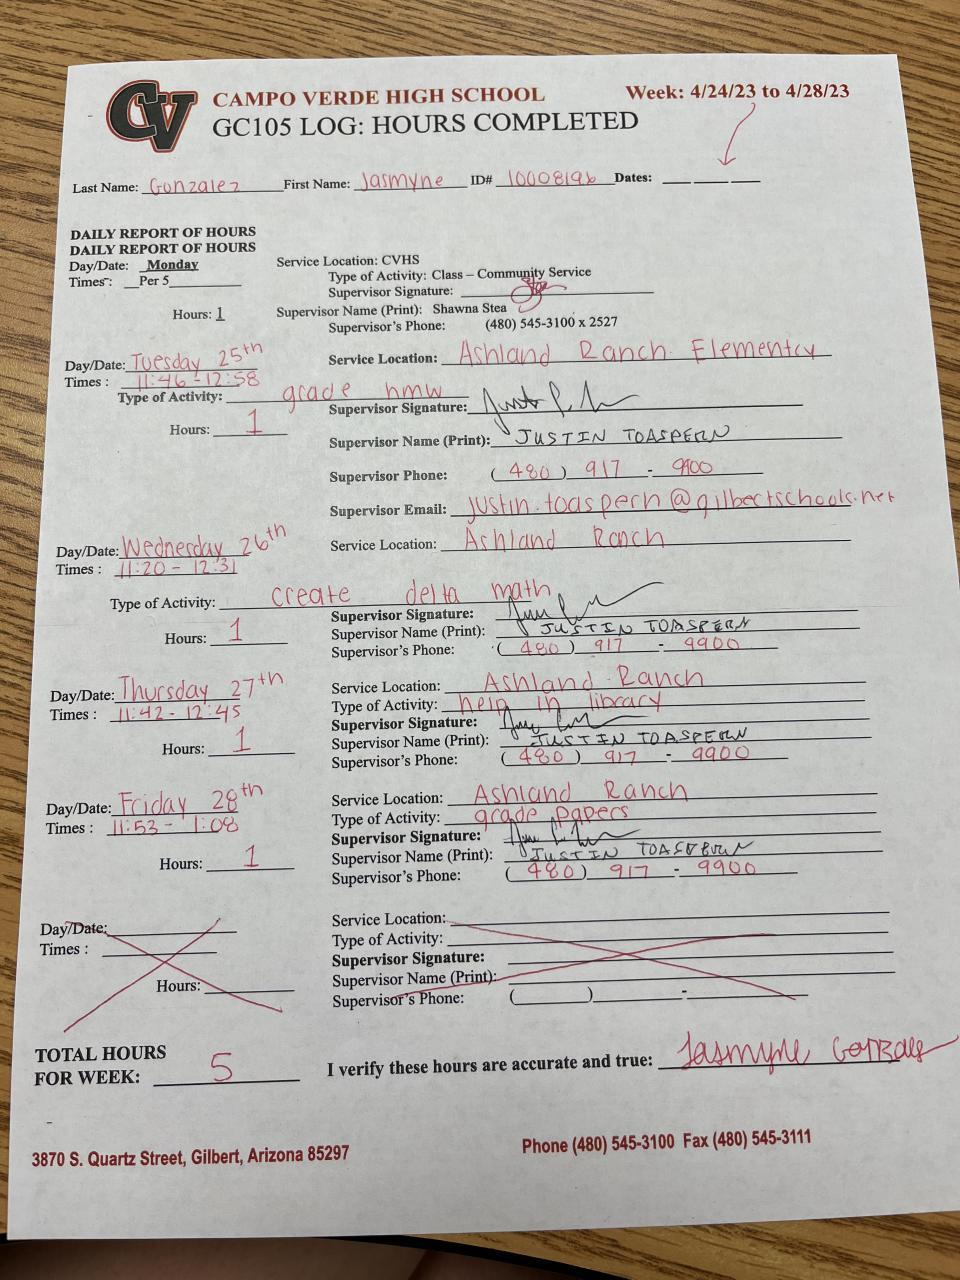 CV
CAMPO VERDE HIGH SCHOOL Week: 4/24/23 to 4/28/23
GC105 LOG: HOURS COMPLETED
Last Name: Gonzalez First Name: Jasmyne ID# 10008196 Dates:
DAILY REPORT OF HOURS
DAILY REPORT OF HOURS
Day/Date: Monday Service Location: CVHS
Times: Per 5 Type of Activity: Class – Community Service
Supervisor Signature:
Hours: 1 Supervisor Name (Print): Shawna Stea
Supervisor's Phone: (480) 545-3100 x 2527
Day/Date: Tuesday 25th Service Location: Ashland Ranch Elementry
Times : 11:46 - 12:58
Type of Activity: grade hmw
Supervisor Signature:
Hours: 1
Supervisor Name (Print): JUSTIN TOASPERN
Supervisor Phone: (480) 917 - 9900
Supervisor Email: justin.toaspern@gilbertschools.net
Day/Date: Wednesday 26th Service Location: Ashland Ranch
Times : 11:20 - 12:31
Type of Activity: create delta math
Supervisor Signature:
Hours: 1 Supervisor Name (Print): JUSTIN TOASPERN
Supervisor's Phone: (480) 917 - 9900
Day/Date: Thursday 27th Service Location: Ashland Ranch
Times : 11:42 - 12:45 Type of Activity: help in library
Supervisor Signature:
Hours: 1 Supervisor Name (Print): JUSTIN TOASPERN
Supervisor's Phone: (480) 917 - 9900
Day/Date: Friday 28th Service Location: Ashland Ranch
Times : 11:53 - 1:08 Type of Activity: grade papers
Supervisor Signature:
Hours: 1 Supervisor Name (Print): JUSTIN TOASPERN
Supervisor's Phone: (480) 917 - 9900
Day/Date: Service Location:
Times : Type of Activity:
Supervisor Signature:
Hours: Supervisor Name (Print):
Supervisor's Phone: ( ) -
TOTAL HOURS
FOR WEEK: 5 I verify these hours are accurate and true: Jasmyne Gonzalez
3870 S. Quartz Street, Gilbert, Arizona 85297 Phone (480) 545-3100 Fax (480) 545-3111